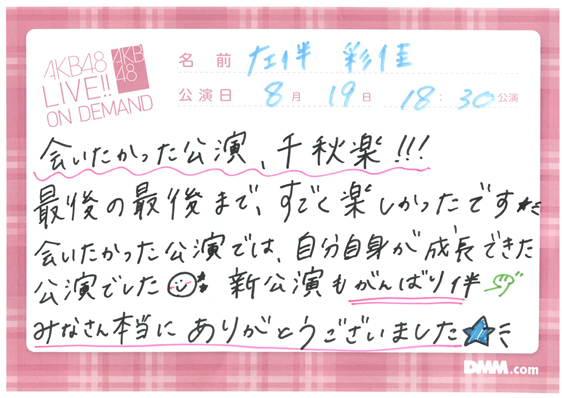 AKB48
LIVE!!
ON DEMAND
AKB
48
名前 左伴 彩佳
公演日 8月 19日 18:30公演
会いたかった公演、千秋楽!!!
最後の最後まで、すごく楽しかったです
会いたかった公演では、自分自身が成長できた
公演でした 新公演もがんばり伴
みなさん本当にありがとうございました
DMM.com